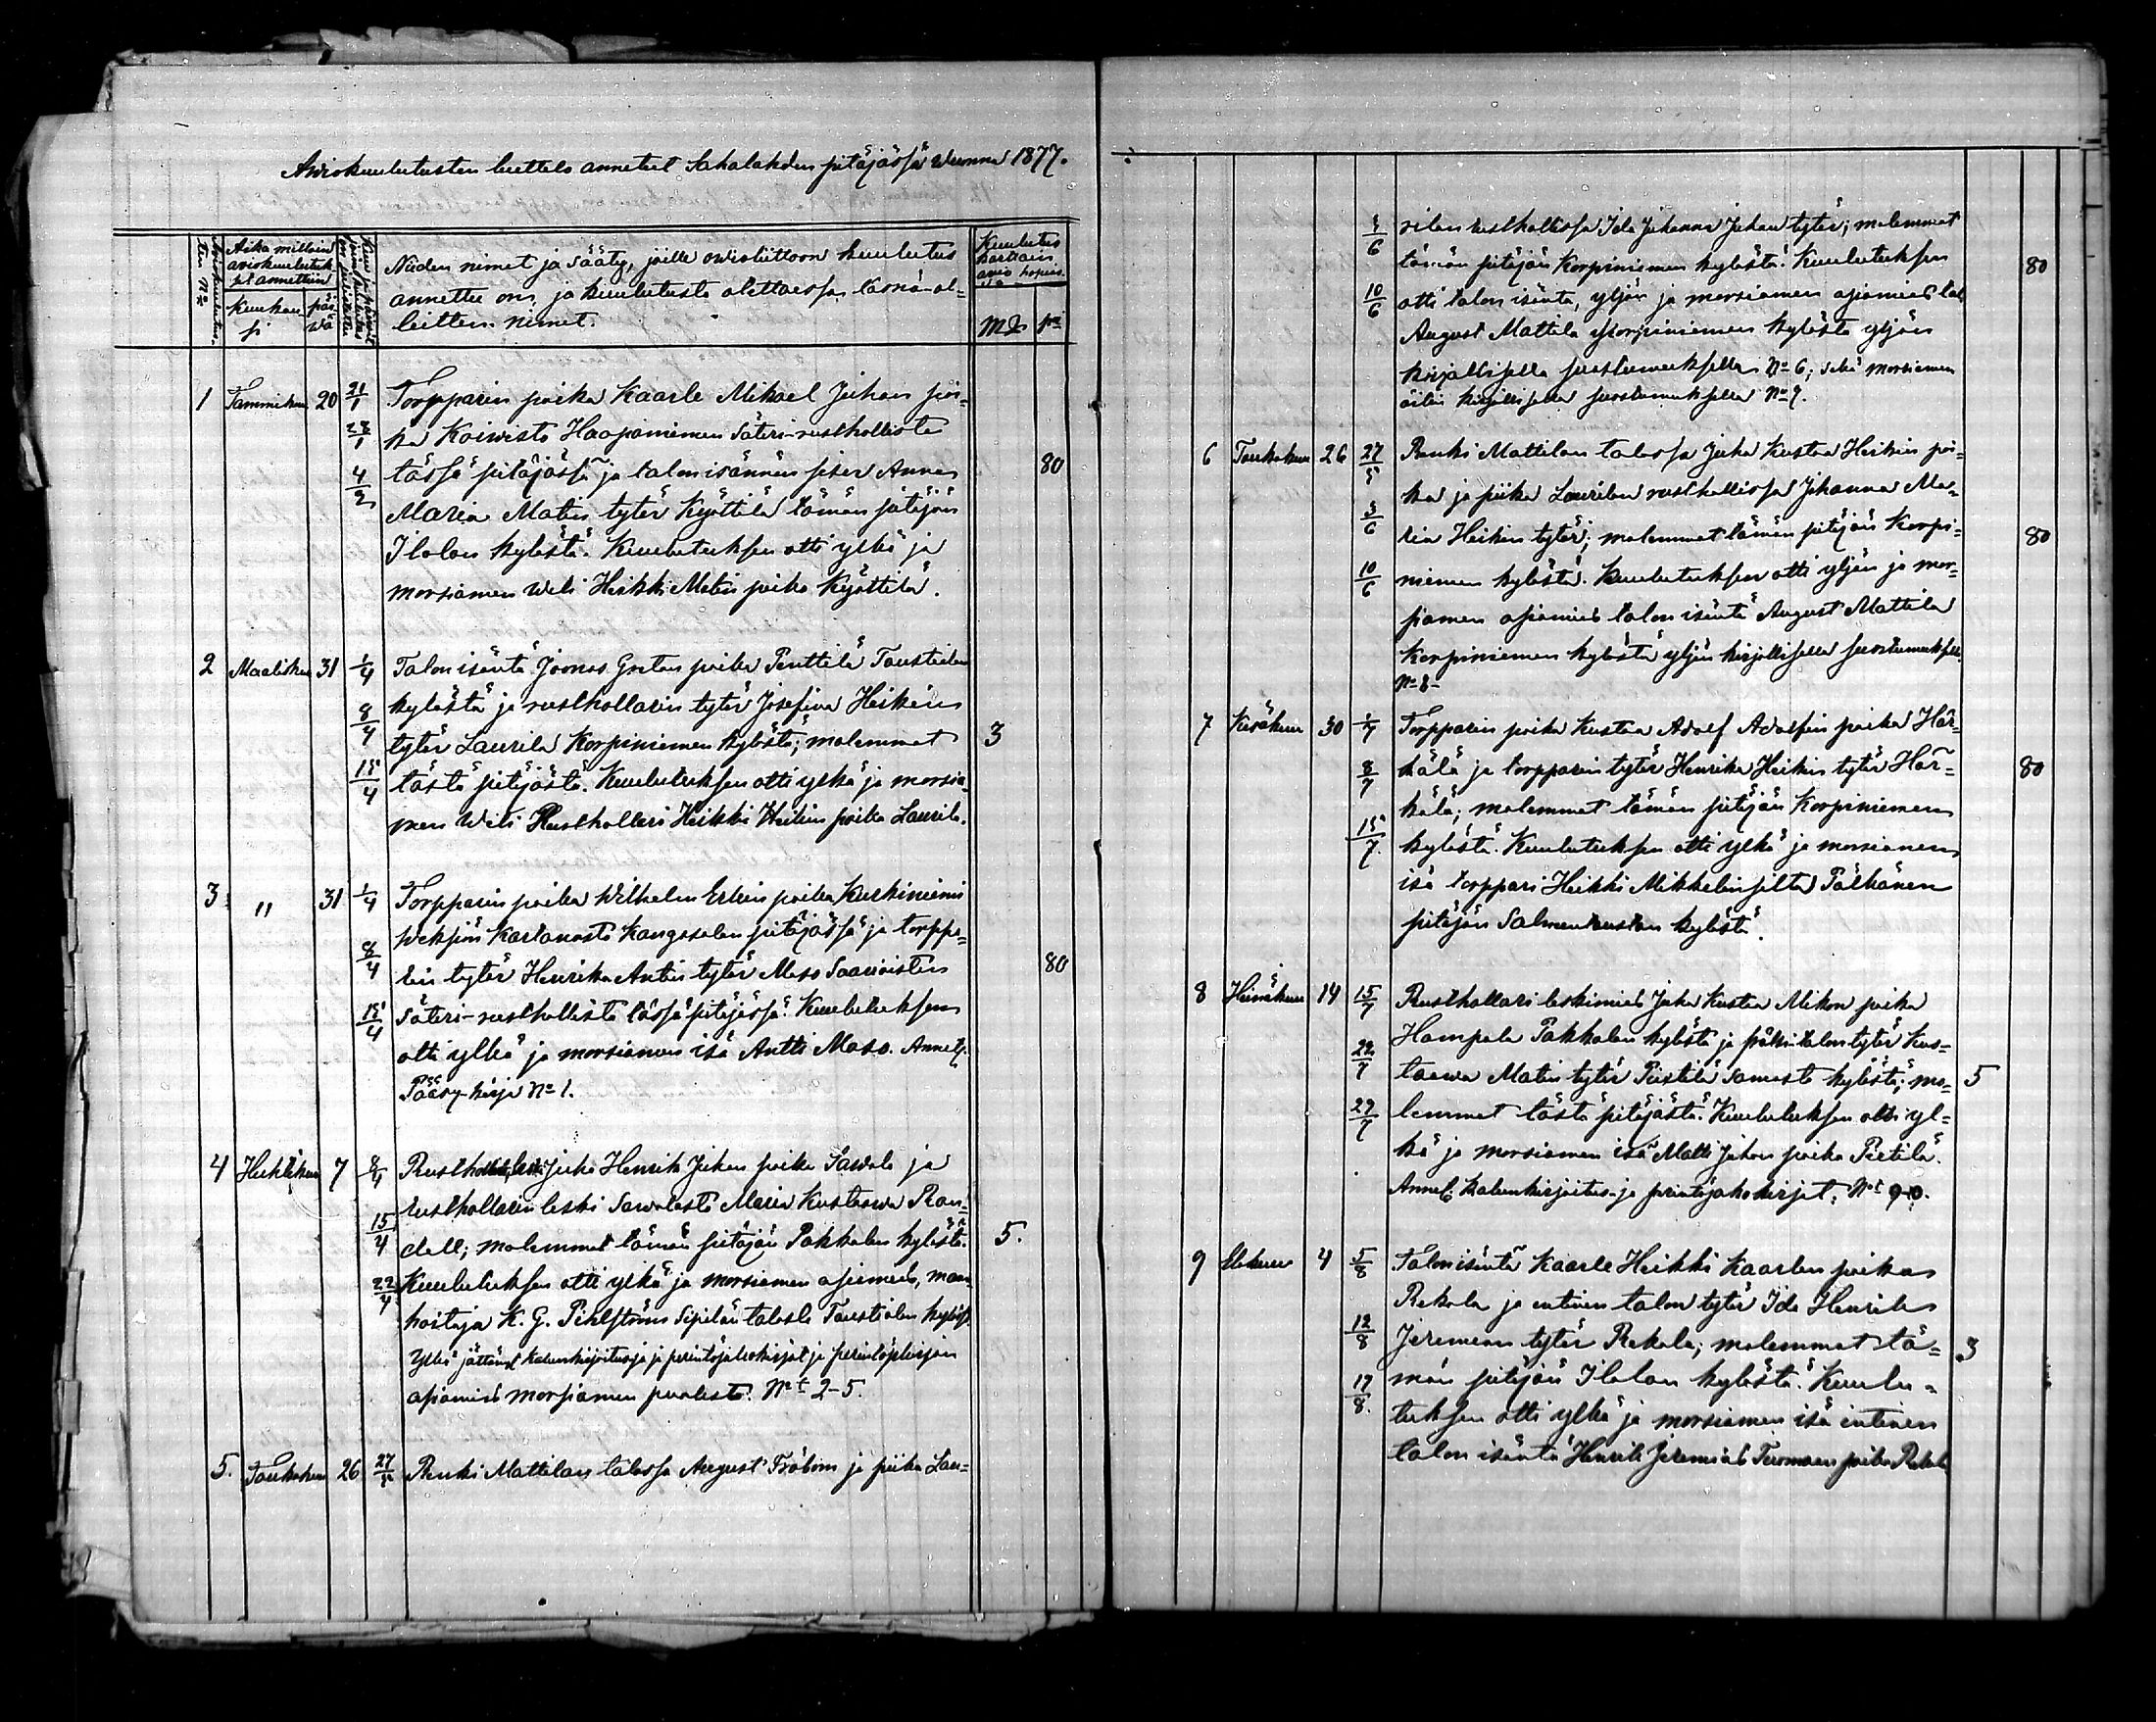 Awiokuulutusten luettelo annetut Sahalahden pitäjässä wuonna 1877.
Aika milloin awiokuulutukset annettiin
kuukausi
päiwä
Niiden nimet ja sääty, joille awioliittoon kuulutus
annettu on, ja kuulutusta otettaessa läsnä-ol-
leitten nimet.
Kuulutus
Mk
pi
1 Tammikuu 20 21/1 Torpparin poika Kaarle Mikael Juhan poi-
28/1 ka Koiwisto Haapaniemen Säteri-rusthollista
4/2 tässä pitäjässä ja talon isännän sisar Anna 80
Maria Matin tytär Kyöttilä tämän pitäjän
Ilolan kylästä. Kuulutuksen otti ylkä ja
morsiamen weli Heikki Matin poika Kyöttilä.
2 Maaliskuu 31 1/4 Talon isäntä Joonas Gretan poika Penttilä Taustialan
8/4 kylästä ja rusthollarin tytär Josefina Heikin
tytär Laurila Korpiniemen kylästä; molemmat 3
15/4 tästä pitäjästä. Kuulutuksen otti ylkä ja morsia-
men weli Rusthollari Heikki Heikin poika Laurila.
3 " 31 1/4 Torpparin poika Wilhelm Erkin poika Kurkiniemi
Weksiön Kartanosta Kangasalan pitäjässä ja torppa-
8/4 rin tytär Henrika Antin tytär Maso Saarioisten 80
15/4 Säteri-rusthollista tässä pitäjässä. Kuulutuksen
otti ylkä ja morsiamen isä Antti Maso. Annett.
Pääsy-kirja No 1.
4 Huhtikuu 7 8/4 Juho Henrik Juhan poika Sawola ja
rusthollarin leski Sawolasta Maria Kustaawa Ran-
15/4 dell; molemmat tämän pitäjän Pakkalan kylästä. 5.
22/4 Kuulutuksen otti ylkä ja morsiamen asiamies, maan
hoitaja K. G. Pihlström Sipilän talosta Taustialan kyläss.
Ylkä jättänyt kalunkirjoitus ja perintöjakokirjat ja
asiamies morsiamen puolesta. No 2-5.
5. Toukokuu 26 27/5 Renki Mattilan talossa August Fröbom ja piika Lau-
3/6 rilan rusthollissa Ida Johanna Juhan tytär; molemmat
tämän pitäjän Korpiniemen kylästä. Kuulutuksen 80
10/6 otti talon isäntä, yljän ja morsiamen asiamies tal.
August Mattila Korpiniemen kylästä yljän
kirjallisella suostumuksella No 6; sekä morsiamen
äitin kirjallisella suostumuksella No 7.
6 Toukokuu 26 27/5 Renki Mattilan talossa Juha Kustaa Heikin poi-
ka ja piika Laurilan rusthollissa Johanna Ma-
3/6 ria Heikin tytär; molemmat tämän pitäjän Korpi- 80
10/6 niemen kylästä. Kuulutuksen otti yljän ja mor-
siamen asiamies talon isäntä August Mattila
Korpiniemen kylästä yljän kirjallisella suostumuksella
No 8-
7 Kesäkuu 30 1/7 Torpparin poika Kustaa Adolf Adolfin poika Här-
8/7 kälä ja torpparin tytär Henrika Heikin tytär Här- 80
kälä; molemmat tämän pitäjän Korpiniemen
15/7. kylästä. Kuulutuksen otti ylkä ja morsiamen
isä torppari Heikki Mikkelinsilta Pälkänen
pitäjän Salmentaustan kylästä.
8 Heinäkuu 14 15/7 Rusthollari leskimies Juha Kustaa Mikon poika
Hampala Pakkalan kylästä ja talontytär Kus-
22/7 taawa Matin tytär Pietilä samasta kylästä; mo- 5
29/7 lemmat tästä pitäjästä. Kuulutuksen otti yl-
kä ja morsiamen isä Matti Johan poika Pietilä.
Annet. kalunkirjoitus- ja perintöjakokirjat. No 9-10.
9 Elokuu 4 5/8 Talon isäntä Kaarle Heikki Kaarlen poika
Rekola ja entinen talon tytär Ida Henrika
12/8 Jeremian tytär Rekola; molemmat tä- 3
19/8. män pitäjän Ilolan kylästä. Kuulu-
tuksen otti ylkä ja morsiamen isä entinen
talon isäntä Henrik Jeremias Tuomaan poika Rekola